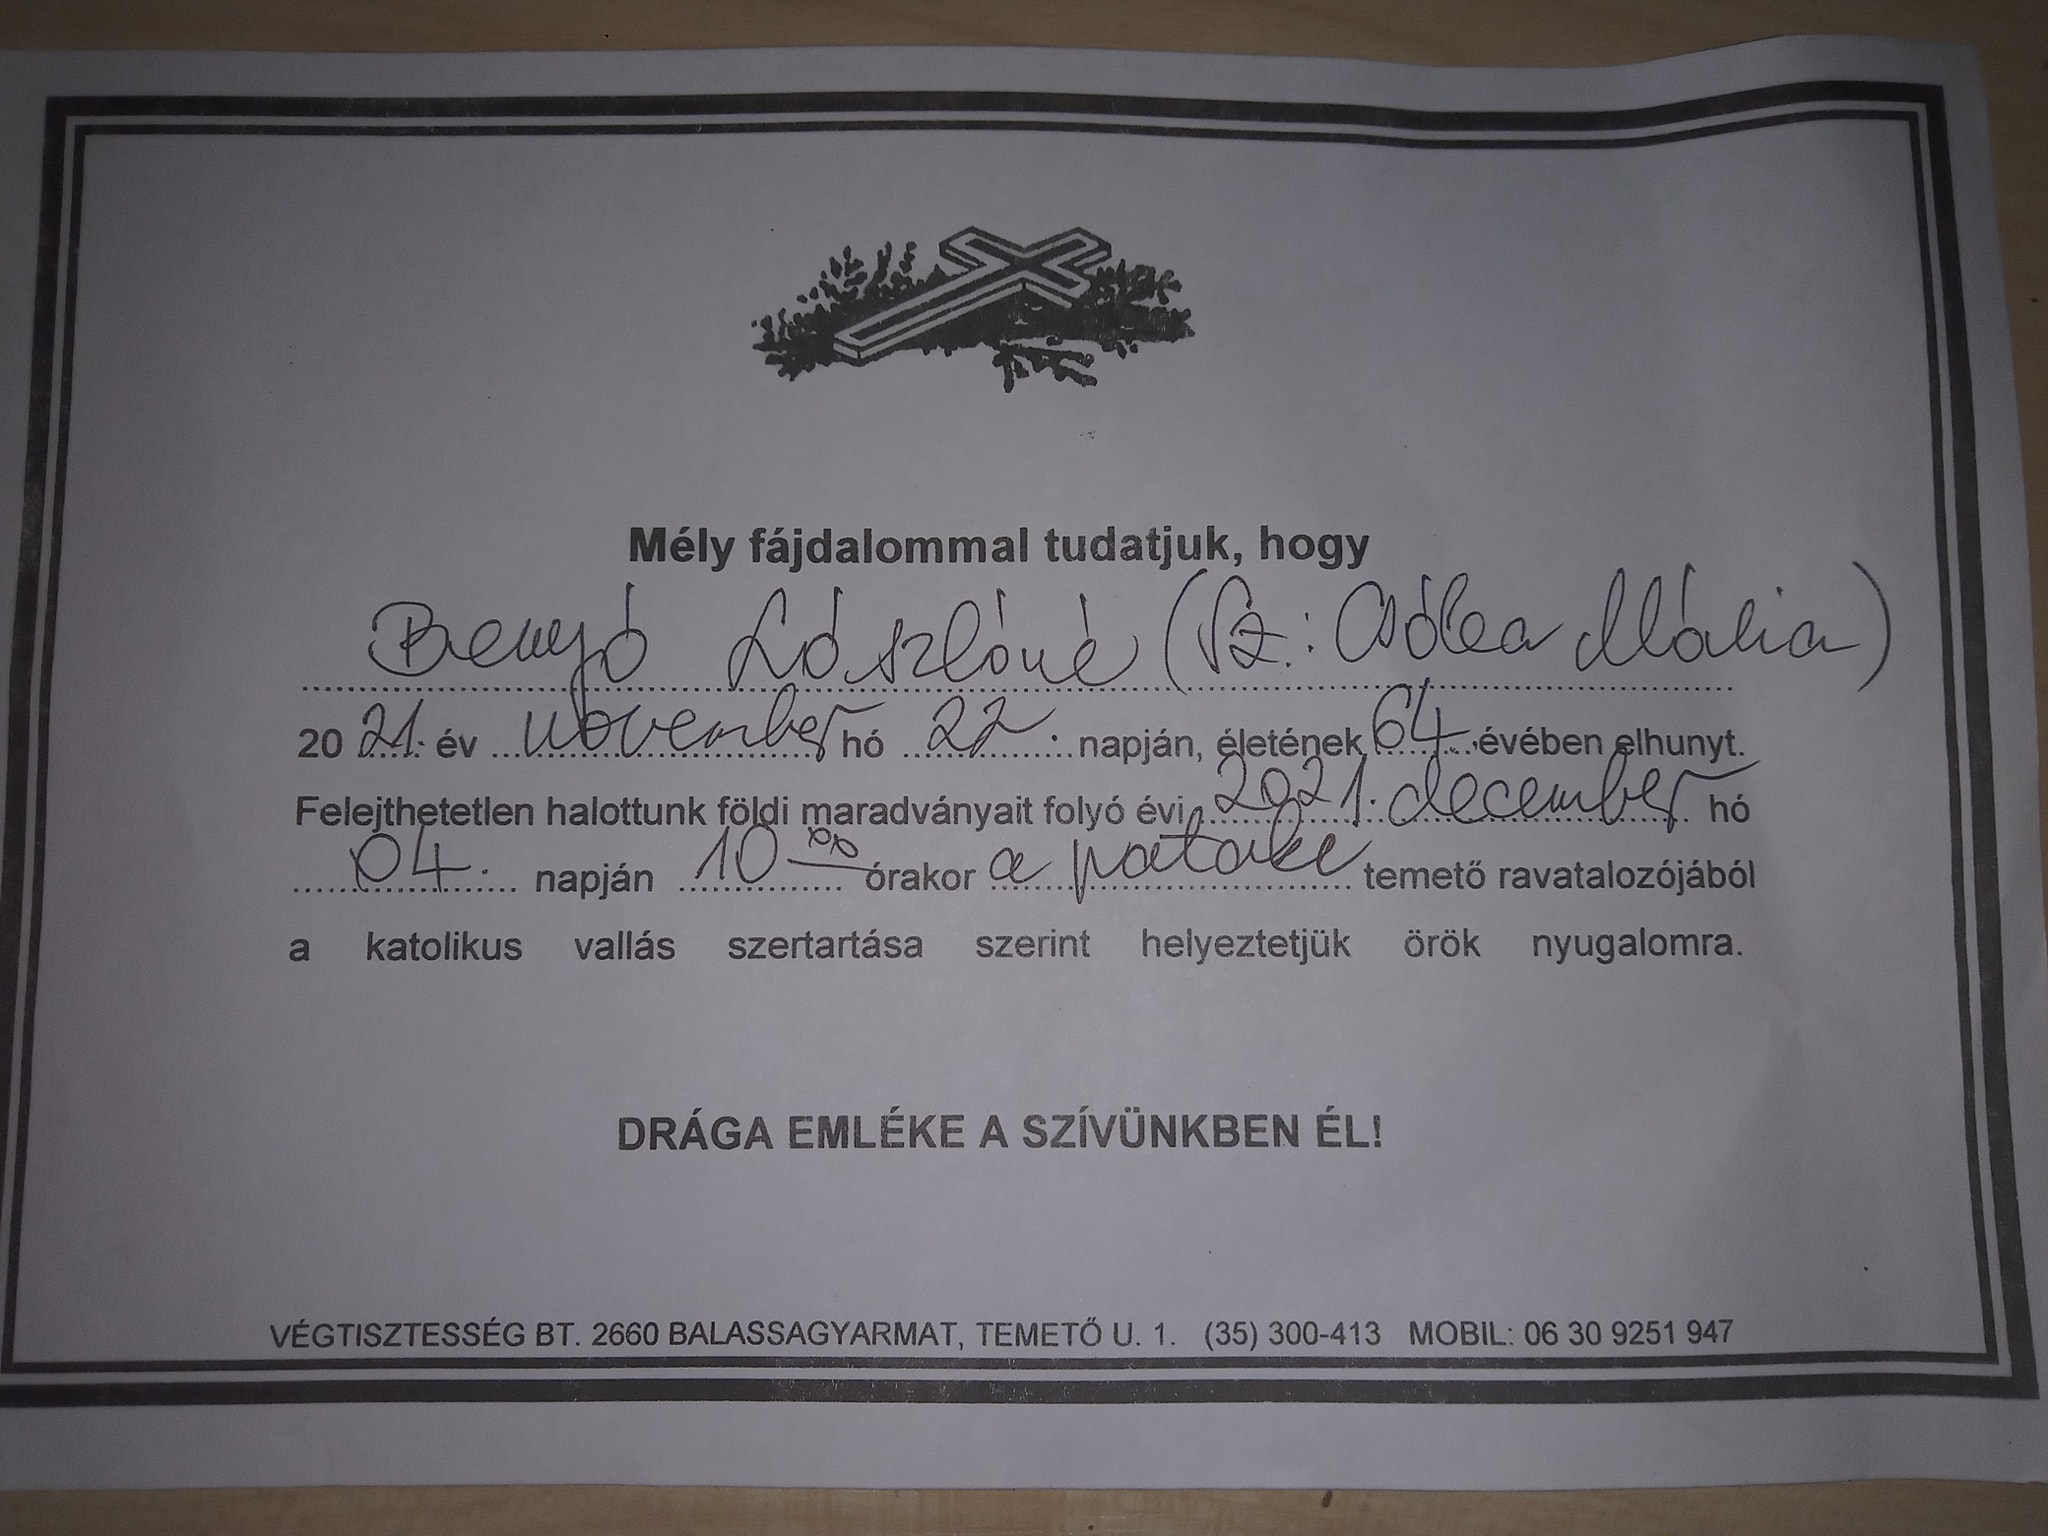 Mély fájdalommal tudatjuk, hogy
Benyó Lászlóné (Sz.: Csólea Mária)
2021. év november hó 22. napján, életének 64. évében elhunyt.
Felejthetetlen halottunk földi maradványait folyó évi 2021. december hó
04. napján 10 00 órakor a pataki temető ravatalozójából
a katolikus vallás szertartása szerint helyeztetjük örök nyugalomra.
DRÁGA EMLÉKE A SZÍVÜNKBEN ÉL!
VÉGTISZTESSÉG BT. 2660 BALASSAGYARMAT, TEMETŐ U. 1. (35) 300-413 MOBIL: 06 30 9251 947